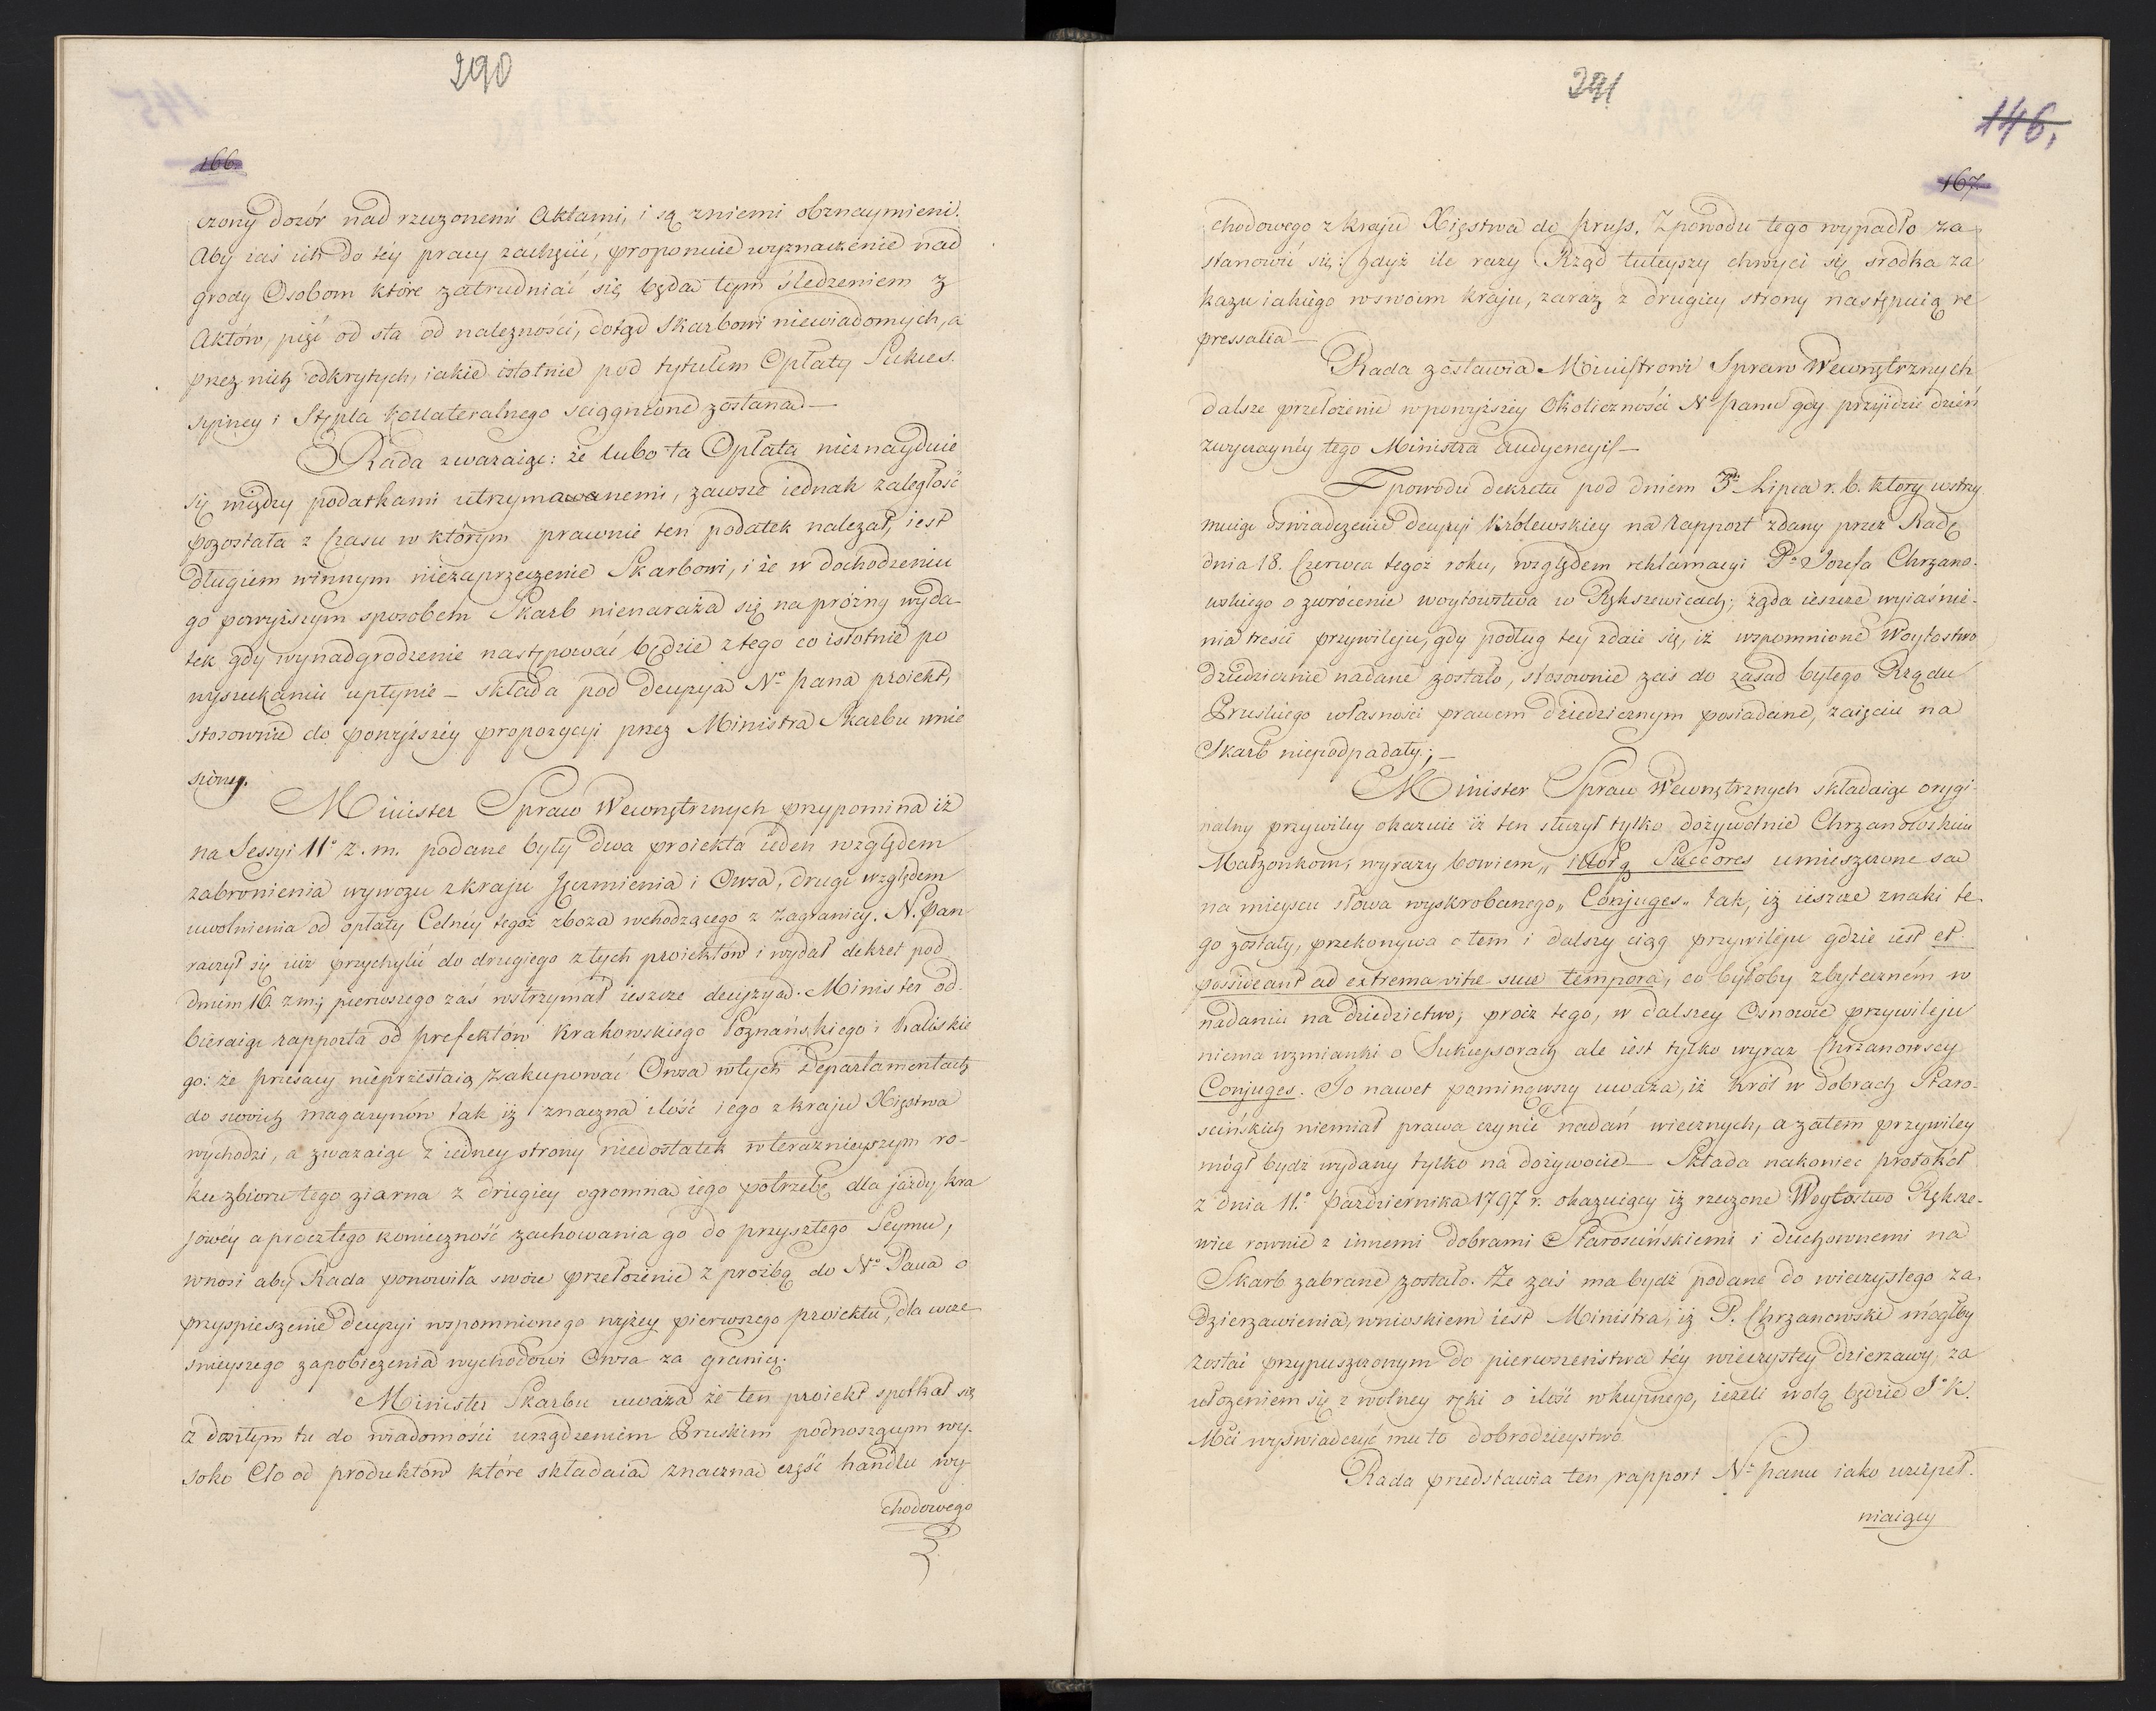 290
166.
czony dozór nad rzeczonemi Aktami, i są zniemi obznaymieni.
Aby zaś ich do téy pracy zachęcić, proponuie wyznaczenie nad
grody Osobom które zatrudniać się będą tym śledzeniem z
Aktów, pięć od sta od należności, dotąd Skarbowi niewiadomych, a
przez nich odkrytych, iakie istotnie pod tytułem Opłaty Sukces.
syiney i Stępla Kollateralnego sciągnione zostaną —
Rada zważaiąc: że lubo ta Opłata nieznayduie
się między podatkami utrzymawanemi, zawsze iednak zaległość
pozostała z Czasu w którym prawnie ten podatek należał, iest
długiem winnym niezaprzeczenie Skarbowi, i że w dochodzeniu
go powyższym sposobem Skarb nienaraża się na próżny wyda-
tek gdy wynadgrodzenie następować będzie z tego co istotnie po
wyszukaniu upłynie — składa pod decyzyą No Pana proiekt,
stosownie do powyższéy propozycyi przez Ministra Skarbu wnie
sioney.
Minister Spraw Wewnętrznych przypomina iż
na Sessyi 11o z. m. podane były dwa proiekta ieden względem
zabronienia wywozu z kraju Jęczmienia i Owsa, drugi względem
uwolnienia od opłaty Celnéy tegoż zboża wchodzącego z zagranicy. N. Pan
raczył się iuż przychylić do drugiego z tych proiektów i wydał dekret pod
dniem 16. z m; pierwszego zaś wstrzymał ieszcze decyzyą. Minister od-
bieraiąc rapporta od prefektów Krakowskiego Poznańskiego i Kaliskie
go: że Prusacy nieprzestaią zakupować Owsa w tych Departamentach
do swoich magazynów tak iż znaczna ilość iego z kraju Xięstwa
wychodzi, a zważaiąc z iedney strony niedostatek w teraznieyszym ro-
ku zbioru tego ziarna z drugiey ogromną iego potrzebę dla jazdy kra
jowéy a prócz tego konieczność zachowania go do przyszłego Seymu,
wnosi aby Rada ponowiła swóie przełożenie z prożbą do No Pana o
przyspieszenie decyzyi wspomnionego wyżey pierwszego proiektu, dla wcze
śnieyszego zapobieżenia wychodowi Owsa za granicę.
Minister Skarbu uważa że ten proiekt spotkał się
z doszłym tu do wiadomości urządzeniem Pruskim podnoszącym wy-
soko Cło od produktów które składaią znaczną część handlu wy-
chodowego
291
146.
167.
chodowego z kraju Xięstwa do Pruss. Zpowodu tego wypadło za-
stanowić się: gdyż ile razy Rząd tuteyszy chwyci się srodka za
kazu iakiego wswoim kraju, zaraz z drugiey strony następuią re
pressalia —
Rada zostawia Ministrowi Spraw Wewnętrznych
dalsze przełożenie w powyższéy Okoliczności No Panu gdy przyidzie dzień
zwyczaynéy tego Ministra audyencyi —
Z powodu dekretu pod dniem 3m Lipca r. b. który wstrzy
muiąc oswiadczenie decyzyi Królewskiey na Rapport zdany przez Radę
dnia 18. Czerwca tegoż roku, względem reklamacyi Pa Józefa Chrzano-
wskiego o zwrócenie woytowstwa w Rększewicach; żąda ieszcze wyiaśnie-
nia treści przywileju, gdy podług tey zdaie się, iż wspomnione Woytostwo
dziedzicznie nadane zostało, stosownie zaś do zasad byłego Rządu
Pruskiego własności prawem dziedzicznym posiadane, zaięciu na
Skarb niepodpadały; —
Minister Spraw Wewnętrznych składaiąc orygi-
nalny przywiléy okazuie iż ten służył tylko dożywotnie Chrzanowskim
Małżonkom, wyrazy bowiem „ illorq Succores umieszczone są
na mieyscu słowa wyskrobanego „ Conjuges „ tak, iż ieszcze znaki te-
go zostały, przekonywa o tem i dalszy ciąg przywileju gdzie iest et
possideant ad extrema vitae suae tempora, co byłoby zbyteczném w
nadaniu na dziedzictwo; prócz tego, w dalszey Osnowie przywileju
niema wzmianki o Sukcessorach ale iest tylko wyraz Chrzanowscy
Conjuges. To nawet pominąwszy uważa, iż Król w dobrach Staro-
scińskich niemiał prawa czynić nadań wiecznych, a zatem przywiléy
mógł bydź wydany tylko na dożywocie — Składa nakoniec protokół
z dnia 11.o Października 1797 r. okazuiący iż rzeczone Woytostwo Rększe-
wice rownie z innemi dobrami Starościńskiemi i duchownemi na
Skarb zabrane zostało. Że zaś ma bydź podane do wieczystego za-
dzierżawienia, wnioskiem iest Ministra, iż P. Chrzanowski mógłby
zostać przypuszczonym do pierwszeństwa téy wieczystéy dzierżawy, za
ułożeniem się z wolney ręki o ilość wkupnego, ieżeli wolą będzie Jo K.
Mci wyświadczyć mu to dobrodzieystwo.
Rada przedstawia ten rapport No Panu iako uzupeł-
niaiący